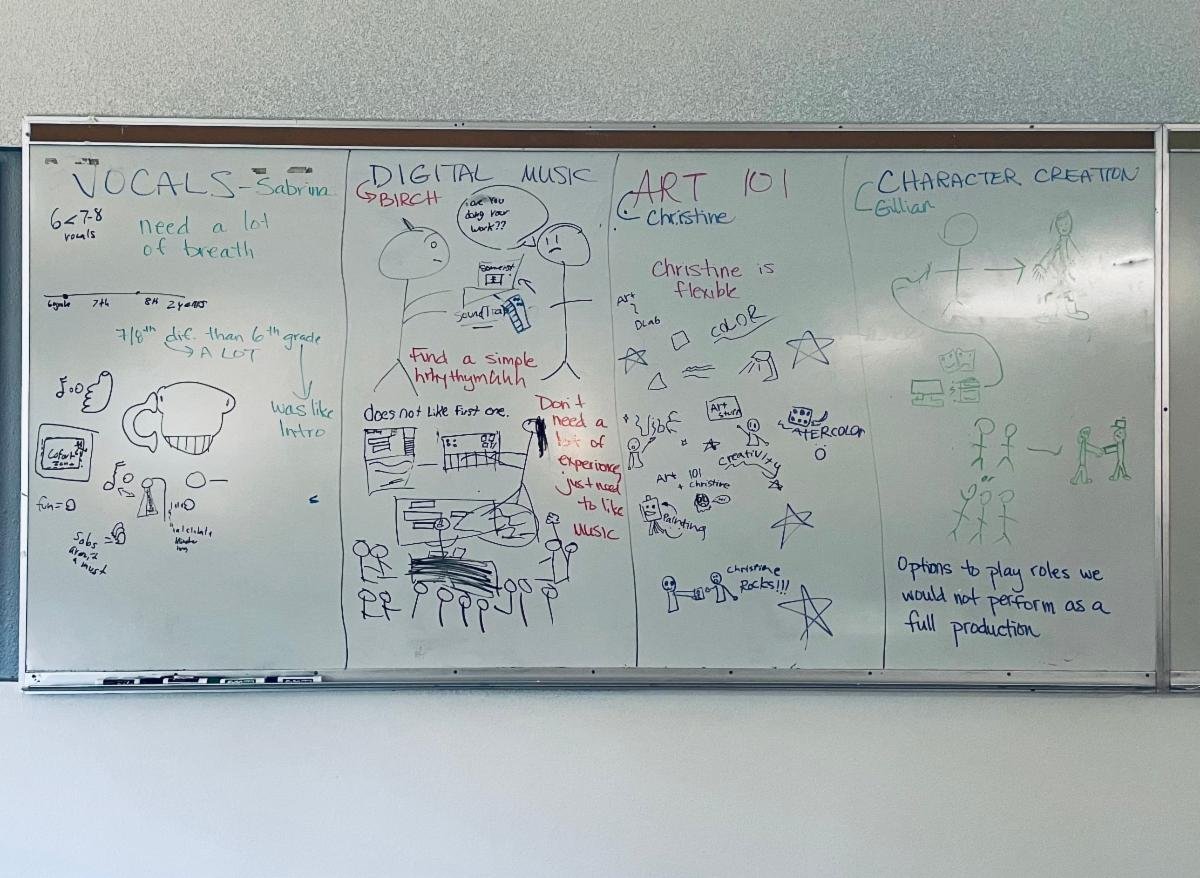 VOCALS - Sabrina
6 < 7-8
vocals
need a lot
of breath
7th
8th
2 years
7/8th dif. than 6th grade
A LOT
was like
Intro
Cofort
Zone
fun =
DIGITAL MUSIC
BIRCH
are you
doing your
work??
SoundTrap
Find a simple
hrhythymhhh
does not like first one.
Don't
need a
lot of
experience
just need
to like
MUSIC
ART 101
Christine
Christine is
flexible
Art
DLab
COLOR
Art
WATERCOLOR
Creativity
Art 101
+ Christine
Painting
Christine
Rocks!!!
CHARACTER CREATION
Gillian
Options to play roles we
would not perform as a
full production